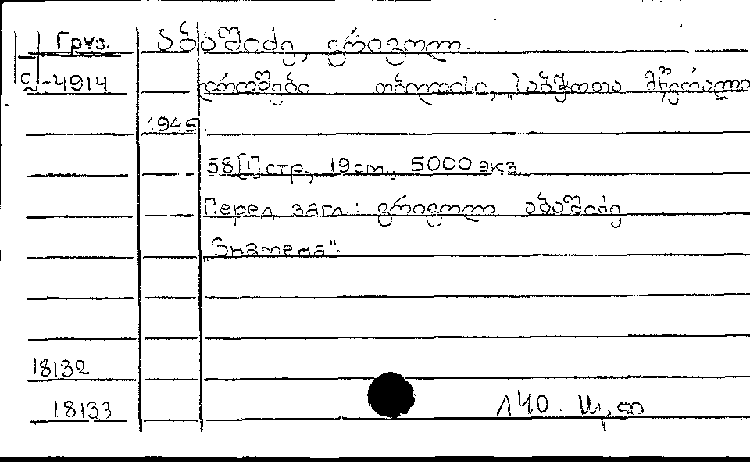 Груз. აბაშიძე, გრიგოლ.
4914 დროშები თბილისი, "საბჭოთა მწერალი
1945
58[1] стр., 19 см., 5000 экз
Перед загл: გრიგოლ აბაშიძე
"Знамена".
18132
18133 140.